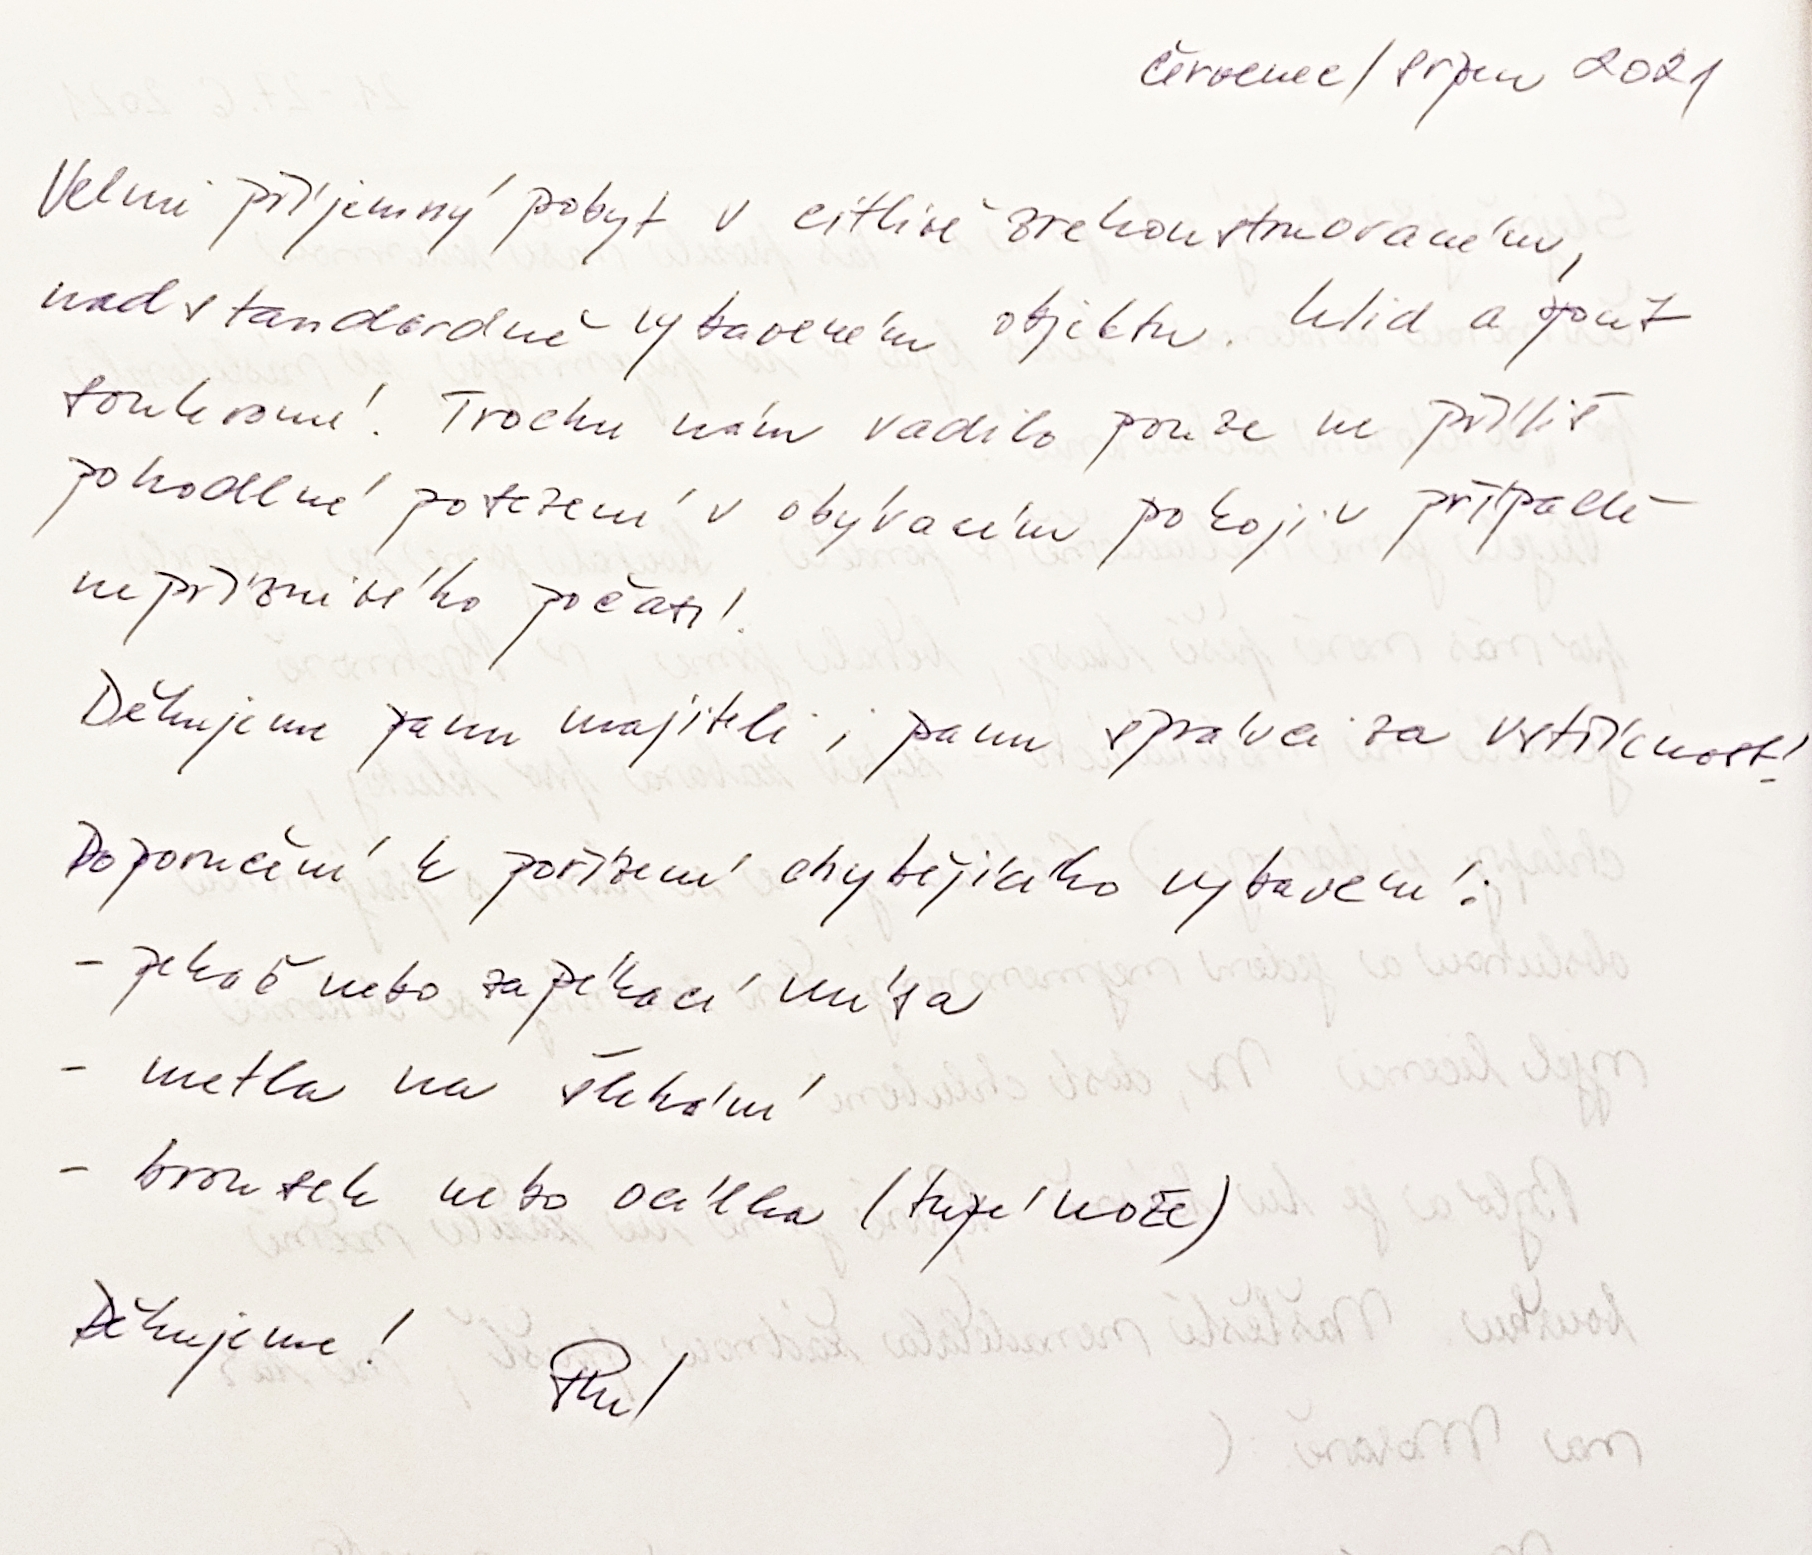 červenec/srpen 2021
Velmi příjemný pobyt v citlivě zrekonstruovaném,
nadstandardně vybaveném objektu. Klid a
soukromí. Trochu nám vadilo pouze ne příliš
pohodlné posezení v obývacím pokoji v případě
nepříznivého počasí.
Děkujeme panu majiteli i panu správci za vstřícnost!
Doporučení k pořízení chybějícího vybavení:
- pekáč nebo zapékací mísa
- metla na šlehání
- brousek nebo ocílka (tupé nože)
Děkujeme!